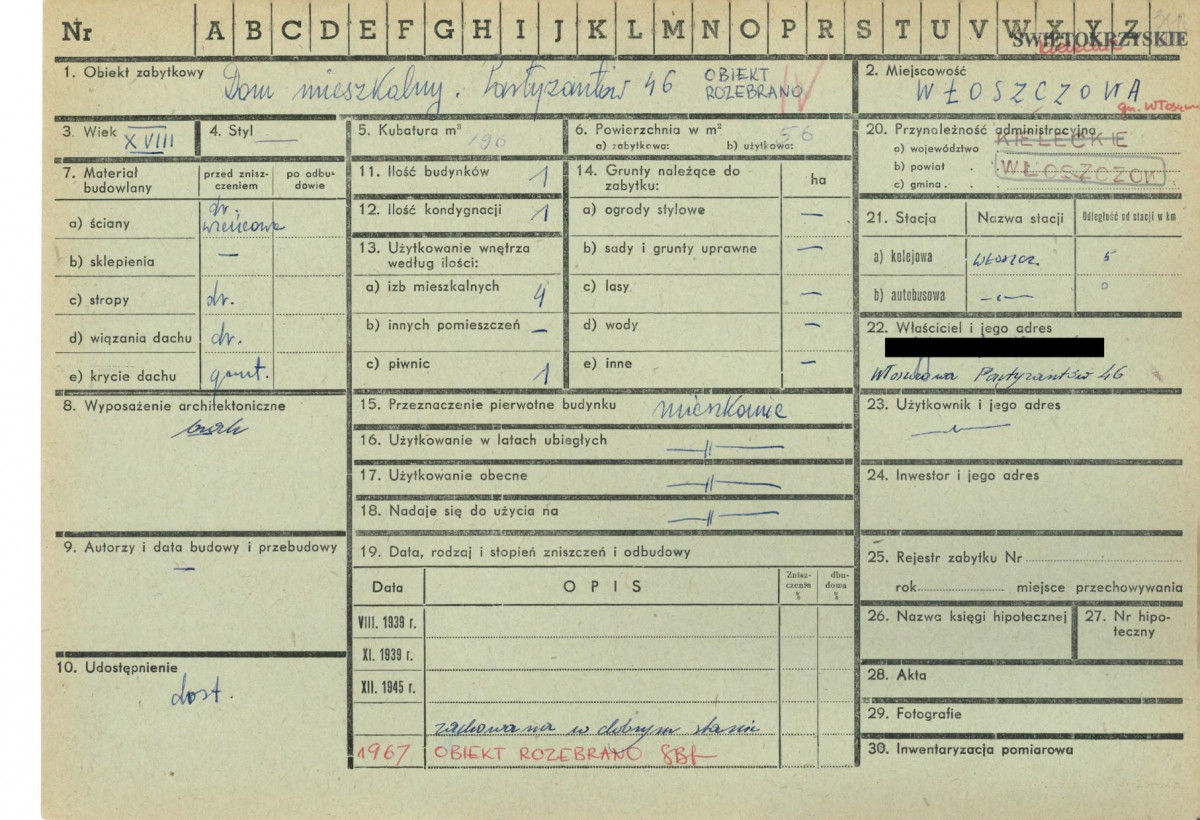 Nr A B C D E F G H I J K L M N O P R S T U V W X Y Z
ŚWIĘTOKRZYSKIE
1. Obiekt zabytkowy Dom mieszkalny. Partyzantów 46 OBIEKT
ROZEBRANO IV
2. Miejscowość
WŁOSZCZOWA
gm. Włoszcz
3. Wiek XVIII
4. Styl —
5. Kubatura m³ 196
6. Powierzchnia w m² 56
a) zabytkowa: b) użytkowa:
20. Przynależność administracyjna
a) województwo KIELECKIE
b) powiat . WŁOSZCZOW
c) gmina . .
7. Materiał budowlany
przed znisz-
czeniem
po odbu-
dowie
a) ściany dr.
wieńcowa
b) sklepienia —
c) stropy dr.
d) wiązania dachu dr.
e) krycie dachu gont.
8. Wyposażenie architektoniczne
brak
9. Autorzy i data budowy i przebudowy
—
10. Udostępnienie
dost.
11. Ilość budynków 1
12. Ilość kondygnacji 1
13. Użytkowanie wnętrza
według ilości:
a) izb mieszkalnych 4
b) innych pomieszczeń —
c) piwnic 1
14. Grunty należące do
zabytku: ha
a) ogrody stylowe —
b) sady i grunty uprawne —
c) lasy —
d) wody —
e) inne —
15. Przeznaczenie pierwotne budynku mieszkanie
16. Użytkowanie w latach ubiegłych —||—
17. Użytkowanie obecne —||—
18. Nadaje się do użycia na —||—
19. Data, rodzaj i stopień zniszczeń i odbudowy
Data OPIS Znisz-
czenia
%
dbu-
dowa
%
VIII. 1939 r.
XI. 1939 r.
XII. 1945 r.
zachowana w dobrym stanie
1967 OBIEKT ROZEBRANO
21. Stacja Nazwa stacji Odległość od stacji w km
a) kolejowa Włoszcz. 5
b) autobusowa —〃— 0
22. Właściciel i jego adres
Włoszczowa Partyzantów 46
23. Użytkownik i jego adres
—〃—
24. Inwestor i jego adres
25. Rejestr zabytku Nr
rok miejsce przechowywania
26. Nazwa księgi hipotecznej
27. Nr hipo-
teczny
28. Akta
29. Fotografie
30. Inwentaryzacja pomiarowa